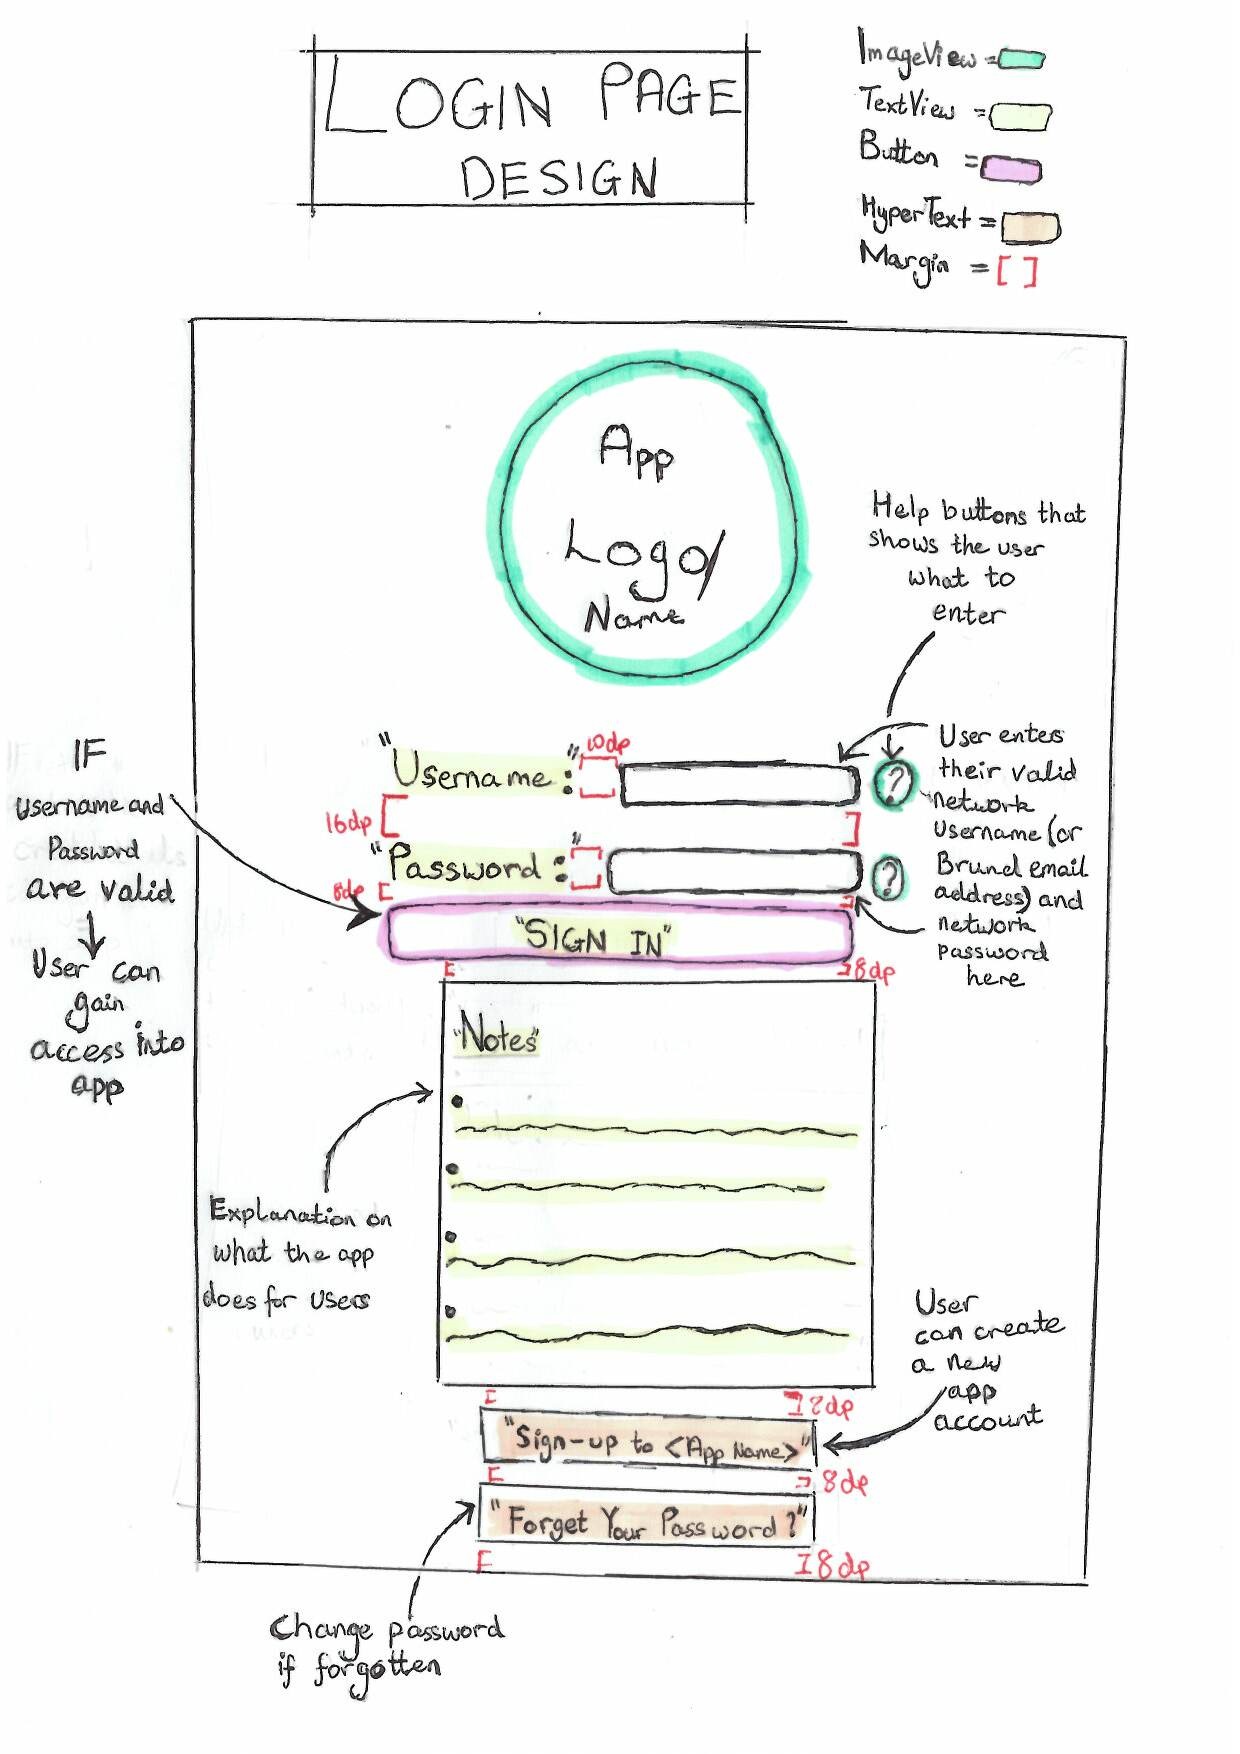 LOGIN PAGE
DESIGN
ImageView =
TextView =
Button =
HyperText =
Margin = [ ]
App
Logo/
Name
Help buttons that
shows the user
what to
enter
"Username:"
10dp
?
16dp
"Password:"
?
User enters
their valid
network
username (or
Brunel email
address) and
network
password
here
IF
username and
Password
are valid
User can
gain
access into
app
8dp
"SIGN IN"
8dp
"Notes"
Explanation on
what the app
does for users
User
can create
a new
app
account
8dp
"Sign-up to <App Name>"
8dp
"Forget Your Password?"
8dp
Change password
if forgotten